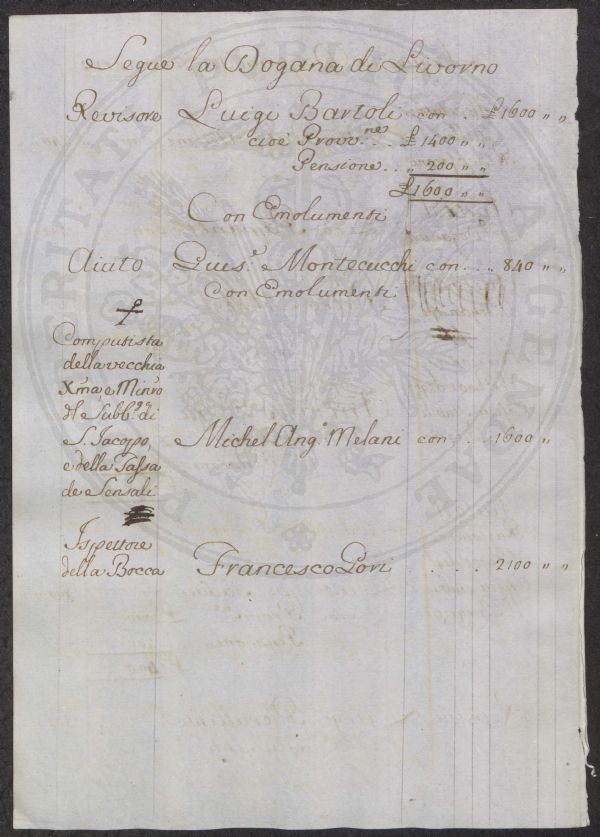 Segue la Dogana di Livorno
Revisore Luigi Bartoli con £ 1600 " "
cioè Provv.ne £ 1400 " "
Pensione .. " 200 " "
£ 1600 " "
Con Emolumenti
Aiuto Gius.e Montecucchi con .. " 840 " "
Con Emolumenti
Computista
della vecchia
Xma e Minro
dl Subb.o di
S. Jacopo,
e della Tassa
de Sensali
Michel Ang.o Melani con . . . 1600 "
Ispettore
della Bocca
Francesco Gori . . . . 2100 " "